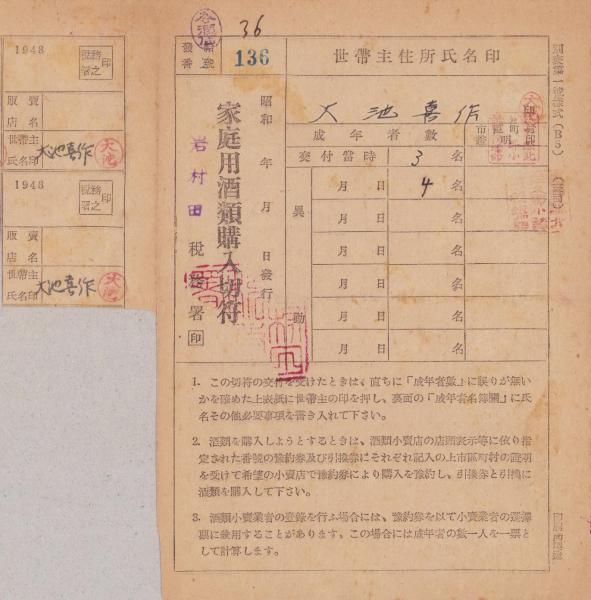 36
136
世帶主住所氏名印
大池喜作
成年者數
交付當時 3 名
月 日 4 名
月 日 名
月 日 名
月 日 名
月 日 名
月 日 名
異
動
昭和 年 月 日發行
家庭用酒類購入切符
岩村田 税務署 印
1. この切符の交付を受けたときは、直ちに「成年者數」に誤りが無い
かを確めた上表紙に世帶主の印を押し、裏面の「成年者名簿欄」に氏
名その他必要事項を書き入れて下さい。
2. 酒類を購入しようとするときは、酒類小賣店の店頭表示等に依り指
定された番號の豫約券及び引換券にそれぞれ記入の上市區町村の證明
を受けて希望の小賣店で豫約券により購入を豫約し、引換券と引換に
酒類を購入して下さい。
3. 酒類小賣業者の登錄を行ふ場合には、豫約券を以て小賣業者の選擇
票に兼用することがあります、この場合には成年者の數一人を一票と
して計算します。
1948
税務
署之
印
販賣
店名
世帶主
氏名印
大池喜作
大池
1948
税務
署之
印
販賣
店名
世帶主
氏名印
大池喜作
大池